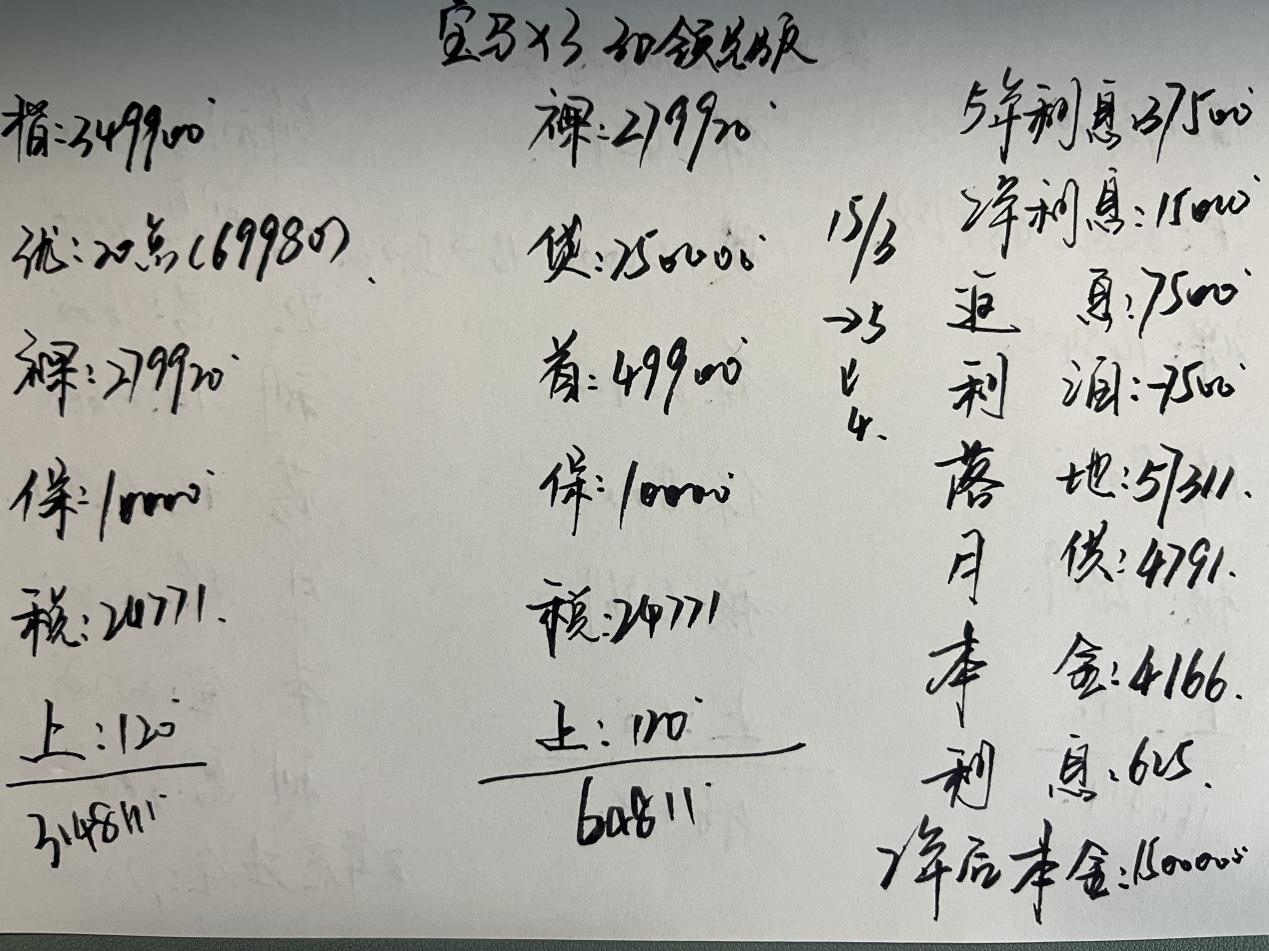 宝马X3 30领先版
指:349900
优:20点(69980)
裸:279920
保:10000
税:24771.
上:120
314811
裸:279920
贷:250000
首:49900
保:10000
税:24771
上:120
64811
15/3
→5
4.
5年利息:37500
2年利息:15000
返息:7500
利润:-7500
落地:57311.
月供:4791.
本金:4166.
利息:625.
2年后本金:150000